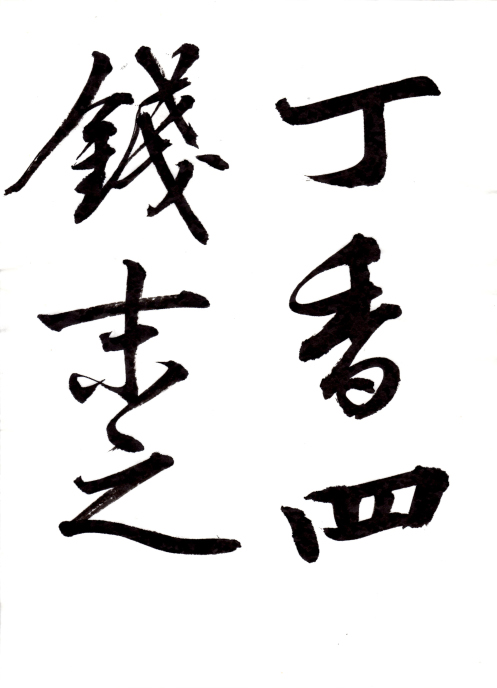 丁香四
錢末之